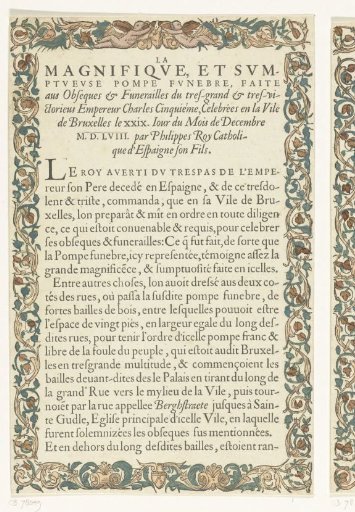 LA
MAGNIFIQVE, ET SVM-
PTVEVSE POMPE FVNEBRE, FAITE
aus Obseques & Funerailles du tres-grand & tres-vi-
ctorieus Empereur Charles Cinquiéme, Celebrées en la Vile
de Bruxelles le XXIX. Iour du Mois de Decembre
M. D. LVIII. par Philippes Roy Catholi-
que d'Espaigne son Fils.
LE ROY AVERTI DV TRESPAS DE L'EMPE-
reur son Pere decedé en Espaigne, & de ce tresdo-
lent & triste, commanda, que en sa Vile de Bru-
xelles, lon preparât & mît en ordre en toute diligen
ce, ce qui estoit conuenable & requis, pour celebrer
ses obseques & funerailles: Ce q̃ fut fait, de sorte que
la Pompe funebre, icy represeñtée, témoigne assez la
grande magnificẽce, & sumptuosité faite en icelles.
Entre autres choses, lon auoit dressé aus deux co-
tés des rues, où passa la susdite pompe funebre, de
fortes bailles de bois, entre lesquelles pouuoit estre
l'espace de vingt piés, en largeur egale du long des-
dites rues, pour tenir l'ordre d'icelle pompe franc &
libre de la foule du peuple, qui estoit audit Bruxel-
les en tresgrande multitude, & commençoient les
bailles deuant-dites des le Palais en tirant du long de
la grand' Rue vers le mylieu de la Vile, puis tour-
noiẽt par la rue appellee Berghstraete jusques à Sain-
te Gudle, Eglise principale d'icelle Vile, en laquelle
furent solemnizées les obseques sus mentionnées.
Et en dehors du long desdites bailles, estoient ran-